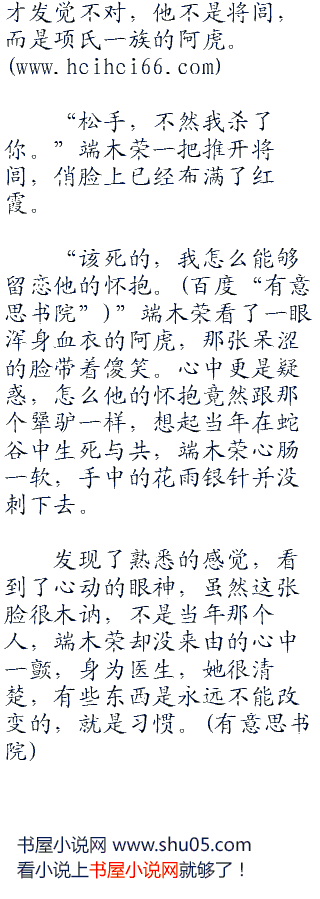 才发觉不对，他不是将闾，
而是项氏一族的阿虎。
(www.hcihci66.com)
“松手，不然我杀了
你。”端木荣一把推开将
闾，俏脸上已经布满了红
霞。
“该死的，我怎么能够
留恋他的怀抱。(百度“有意
思书院”)”端木荣看了一眼
浑身血衣的阿虎，那张呆涩
的脸带着傻笑。心中更是疑
惑，怎么他的怀抱竟然跟那
个犟驴一样，想起当年在蛇
谷中生死与共，端木荣心肠
一软，手中的花雨银针并没
刺下去。
发现了熟悉的感觉，看
到了心动的眼神，虽然这张
脸很木讷，不是当年那个
人，端木荣却没来由的心中
一颤，身为医生，她很清
楚，有些东西是永远不能改
变的，就是习惯。(有意思书
院)
书屋小说网 www.shu05.com
看小说上书屋小说网就够了！